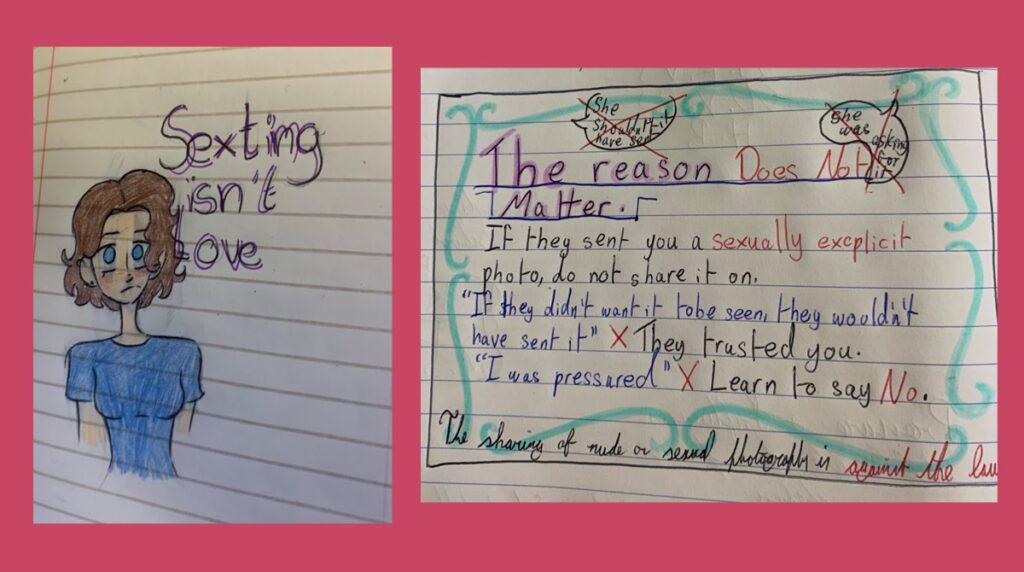 Sexting
isn't
Love
She
shouldn't
have sent it
She
was
asking
for
it
The reason Does Not
Matter.
If they sent you a sexually excplicit
photo, do not share it on.
"If they didn't want it tobe seen, they wouldn't
have sent it" X They trusted you.
"I was pressured" X Learn to say No.
The sharing of nude or sexual photographs is against the law